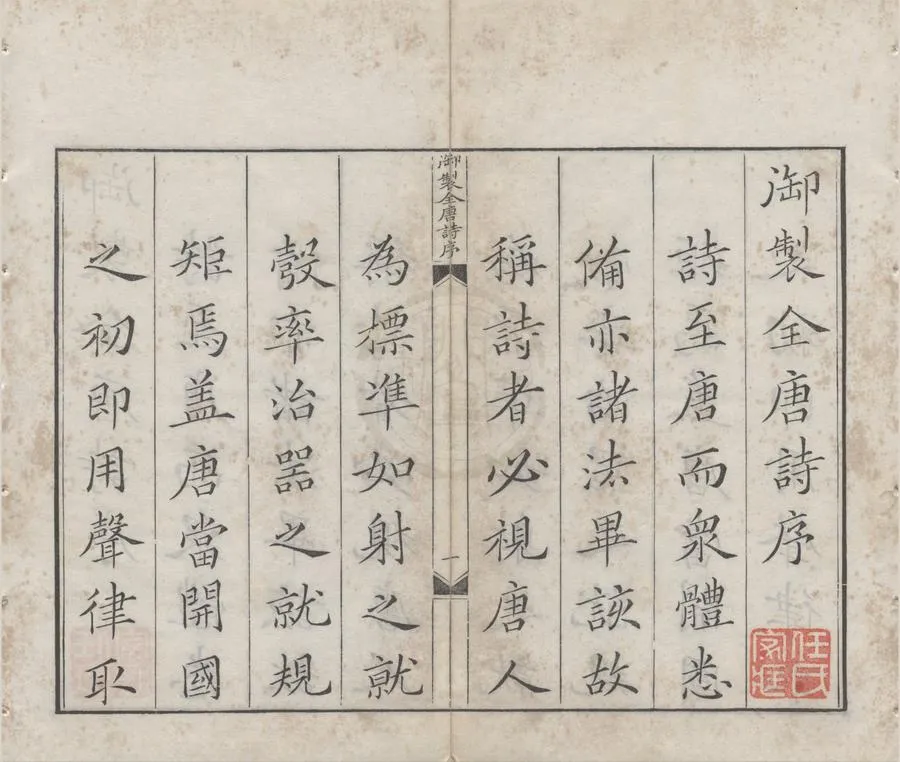 御製全唐詩序
詩至唐而衆體悉
備亦諸法畢該故
稱詩者必視唐人
御製全唐詩序
一
為標準如射之就
彀率治器之就規
矩焉盖唐當開國
之初即用聲律取